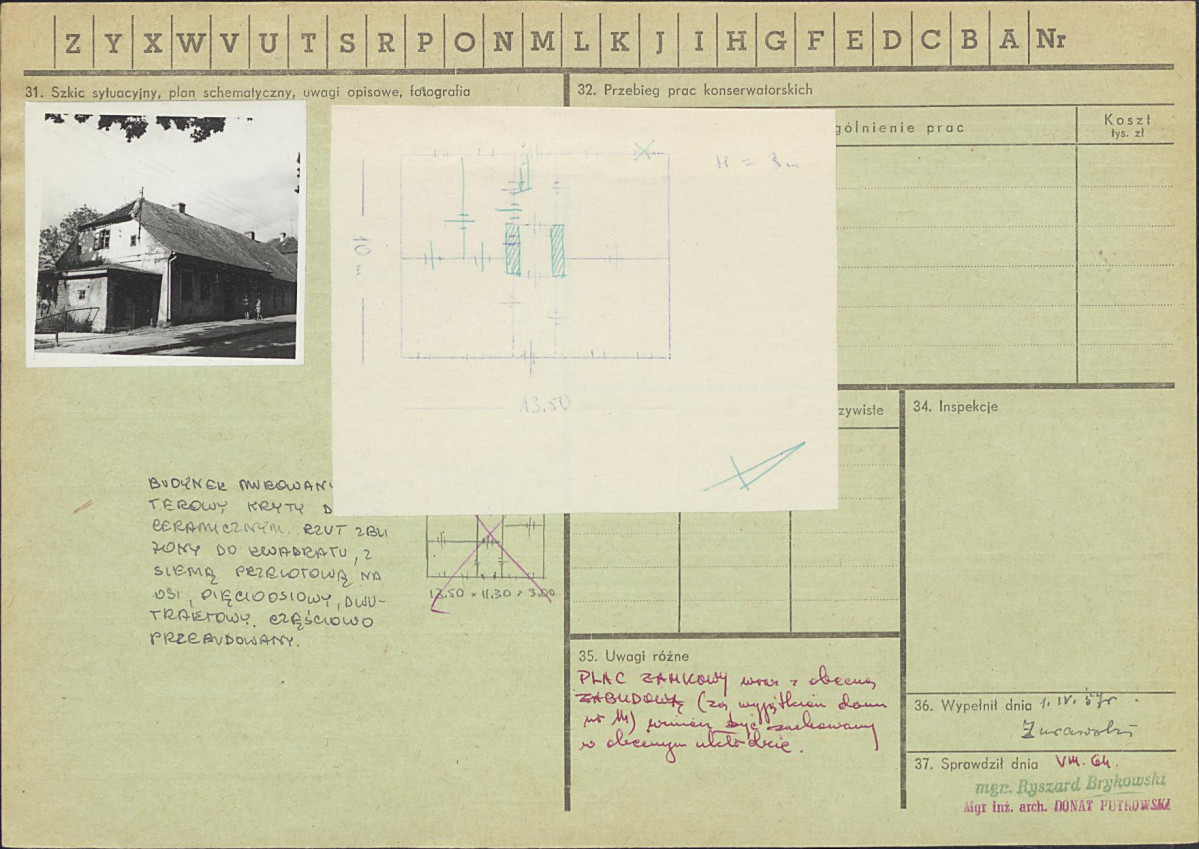 Z Y X W V U T S R P O N M L K J I H G F E D C B A Nr
31. Szkic sytuacyjny, plan schematyczny, uwagi opisowe, fotografia
32. Przebieg prac konserwatorskich
gólnienie prac
Koszt
tys. zł
H = 3 m
10 m
13.50
BUDYNEK MUROWANY
TEROWY KRYTY D
CERAMICZNYM. RZUT ZBLI
ŻONY DO KWADRATU, Z
SIENIĄ PRZELOTOWĄ NA
OSI, PIĘCIOOSIOWY, DWU-
TRAKTOWY. CZĘŚCIOWO
PRZEBUDOWANY.
13.50 × 11.30 × 3.00
zywiste
34. Inspekcje
35. Uwagi różne
PLAC ZAMKOWY wraz z obecną
ZABUDOWĄ (za wyjątkiem domu
nr 11) winien być zachowany
w obecnym układzie.
36. Wypełnił dnia 1. IV. 59 r.
Żurawski
37. Sprawdził dnia VIII. 64.
mgr. Ryszard Brykowski
Mgr inż. arch. DONAT PUTKOWSKI